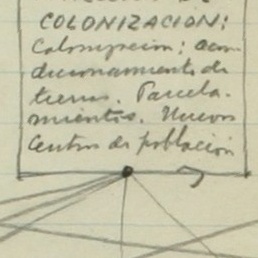 COLONIZACION:
Colonizacion; acon
dicionamiento de
tierras. Parcela-
mientos. Nuevos
Centros de población